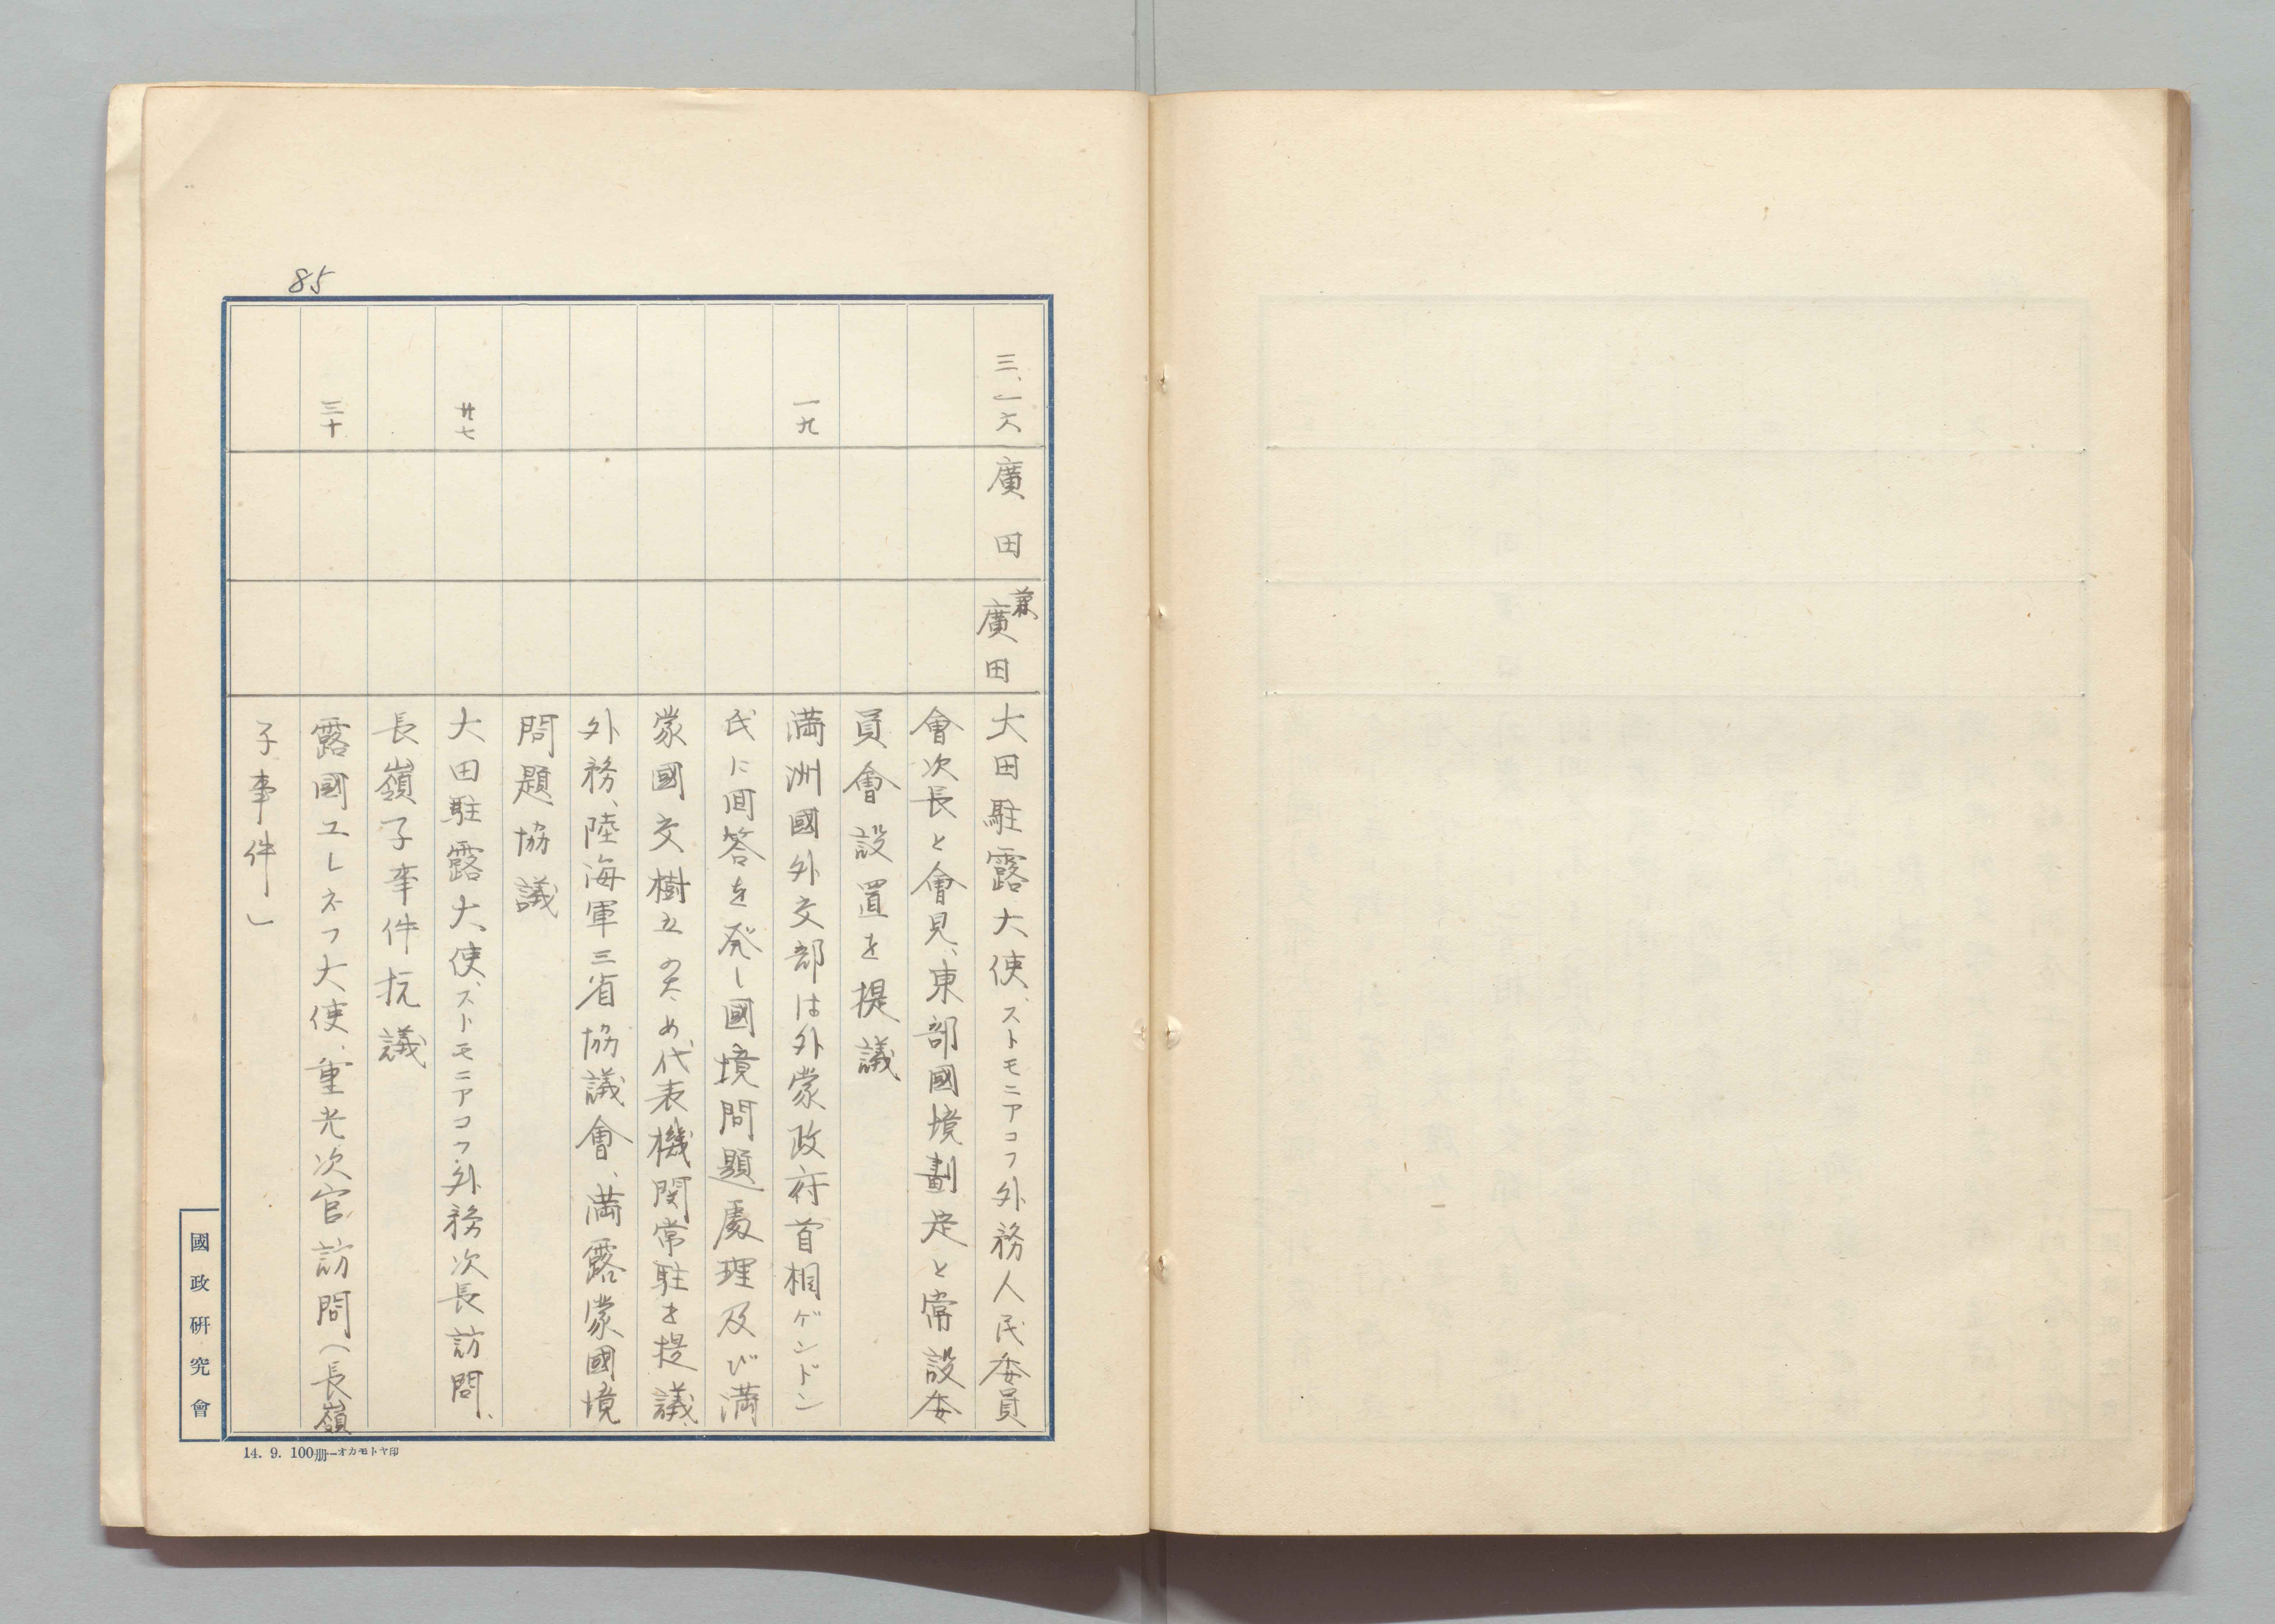 85
三、一六 廣田 兼廣田 大田駐露大使、ストモニアコフ外務人民委員
會次長と會見、東部國境劃定と常設委
員會設置を提議
一九 満洲國外交部は外蒙政府首相ゲンドン
氏に回答を発し國境問題處理及び満
蒙國交樹立のため代表機関常駐を提議
外務、陸海軍三省協議會、満露蒙國境
問題協議
廿七 大田駐露大使、ストモニアコフ外務次長訪問、
長嶺子事件抗議
三十 露國ユレネフ大使、重光次官訪問（長嶺
子事件」
國政研究會
14. 9. 100冊—オカモトヤ印